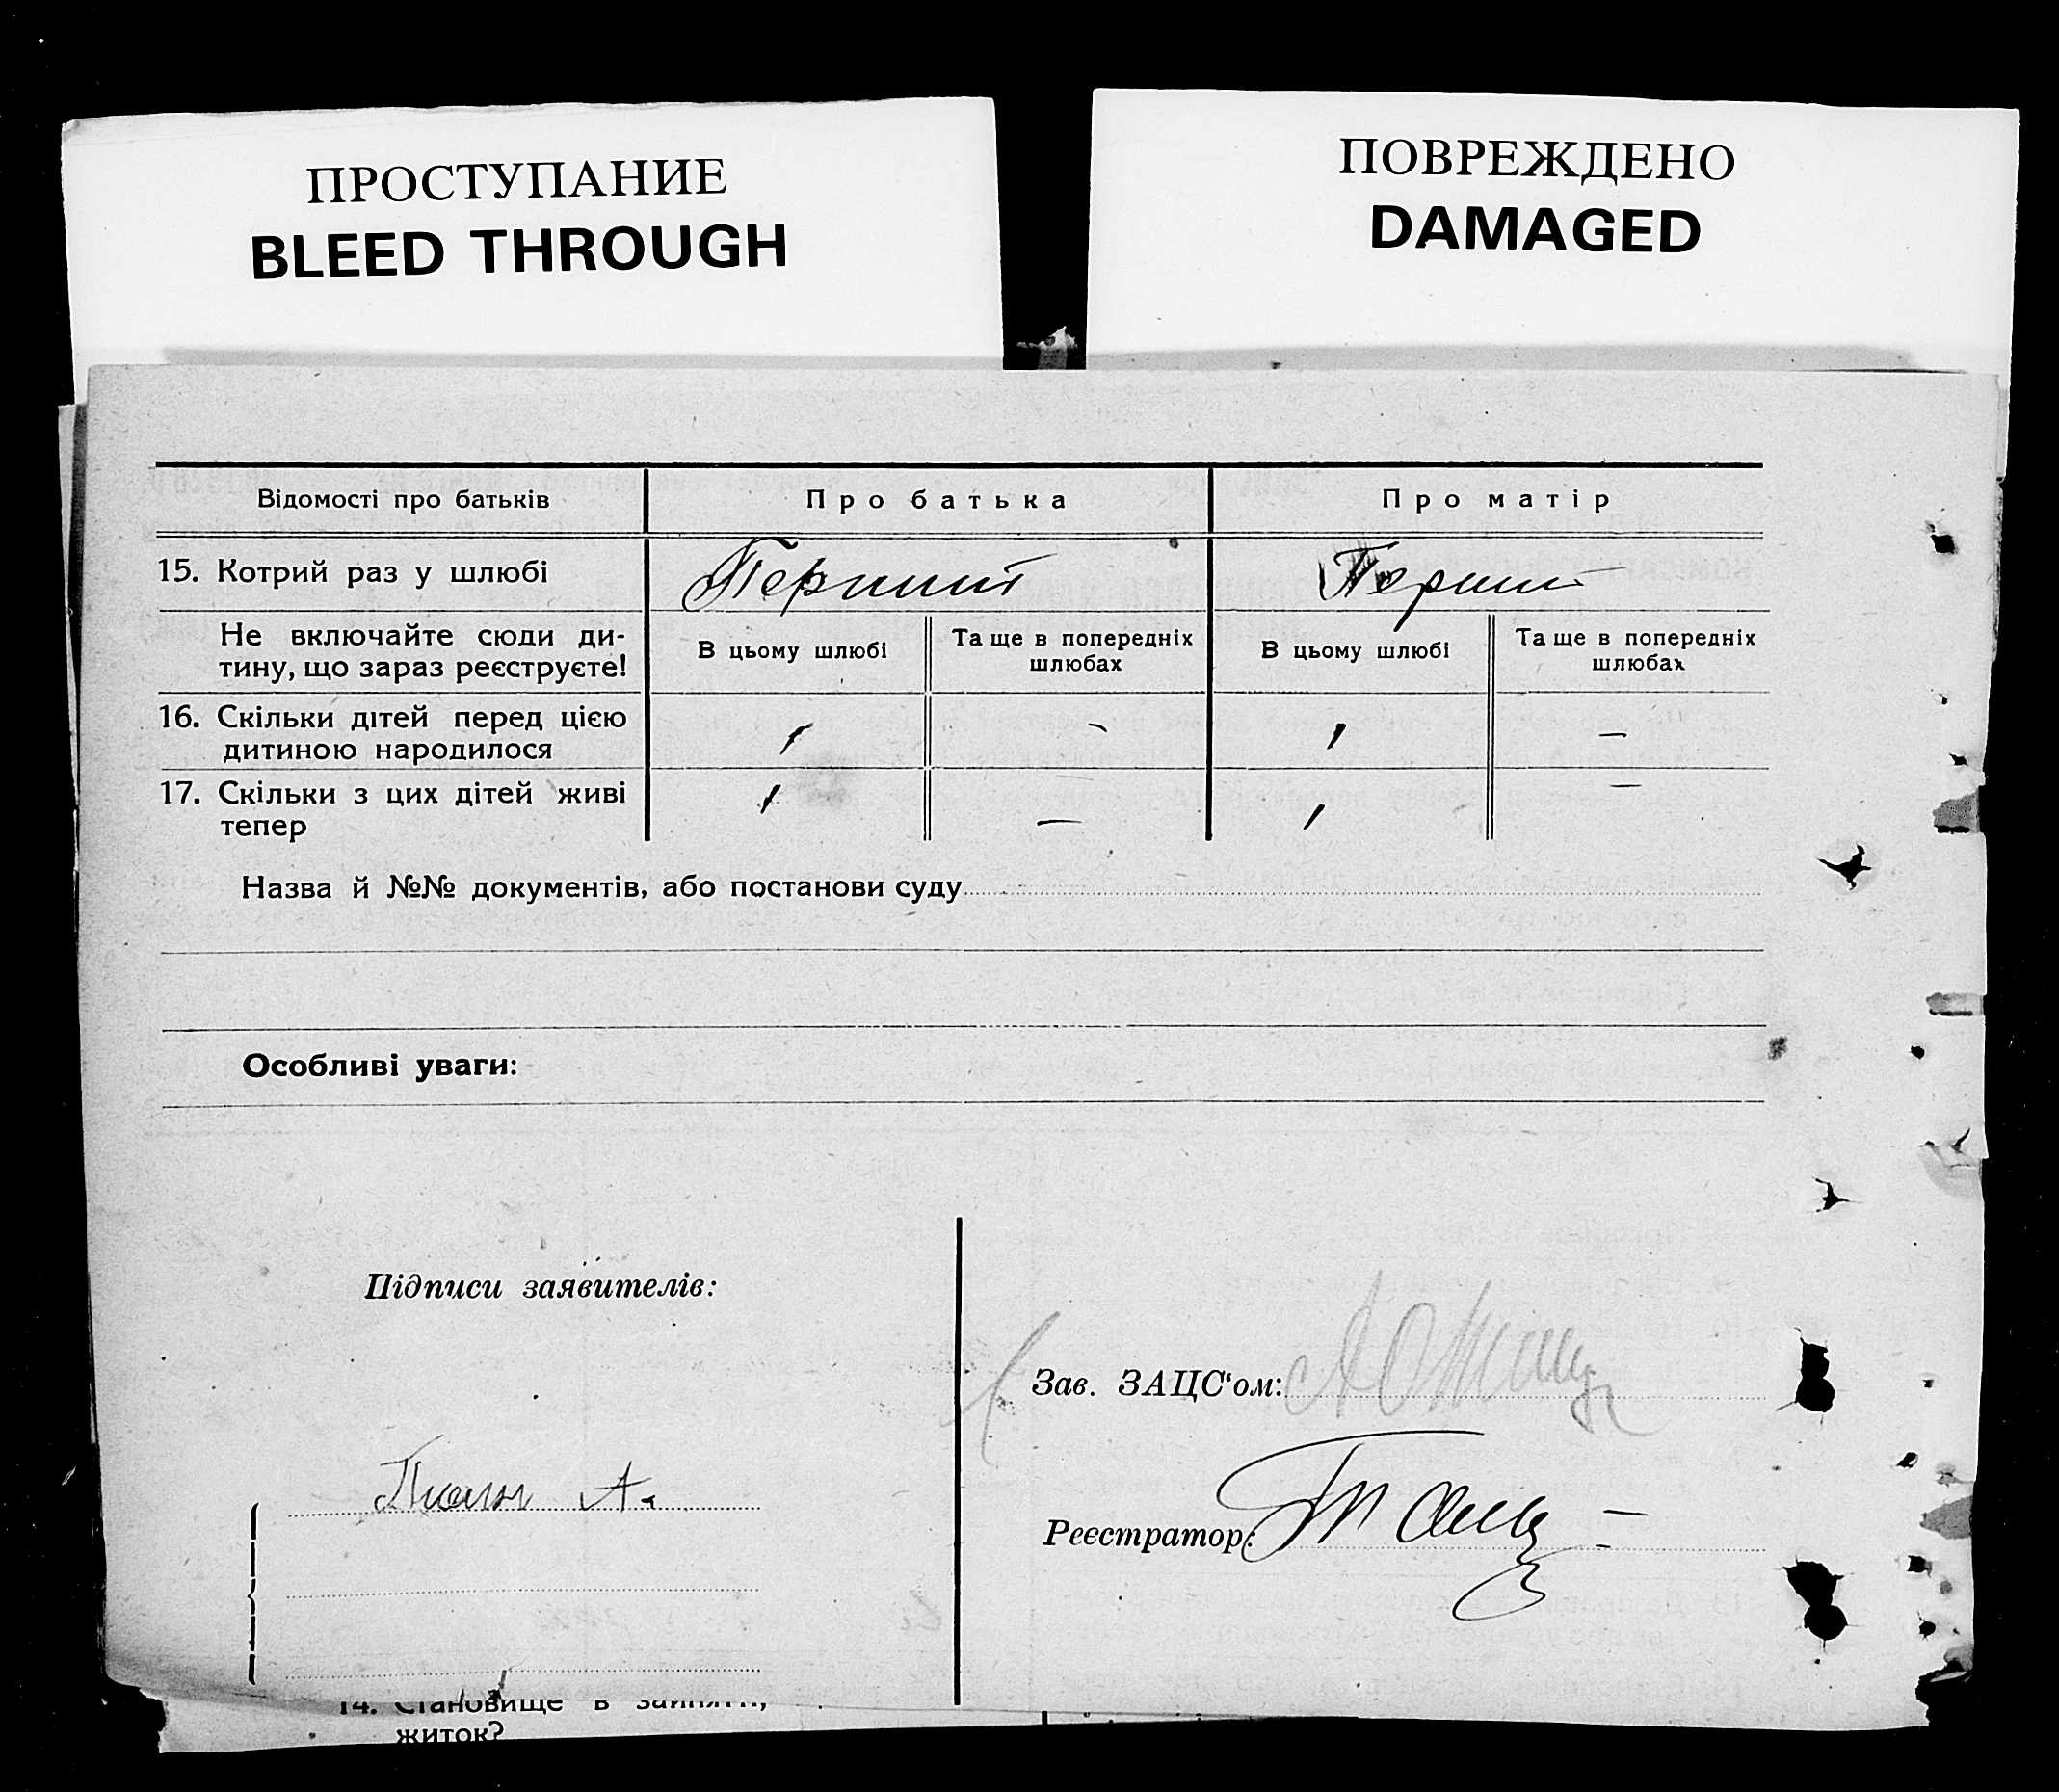 ПРОСТУПАНИЕ
BLEED THROUGH
ПОВРЕЖДЕНО
DAMAGED
Відомості про батьків
Про батька
Про матір
15. Котрий раз у шлюбі
Перший
Перший
Не включайте сюди ди-
тину, що зараз реєструєте!
В цьому шлюбі
Та ще в попередніх
шлюбах
В цьому шлюбі
Та ще в попередніх
шлюбах
16. Скільки дітей перед цією
дитиною народилося
1
-
1
-
17. Скільки з цих дітей живі
тепер
1
-
1
-
Назва й №№ документів, або постанови суду
Особливі уваги:
Підписи заявителів:
А.
Зав. ЗАЦС‘ом:
Реєстратор:
14. Становище в занятті,
житок?